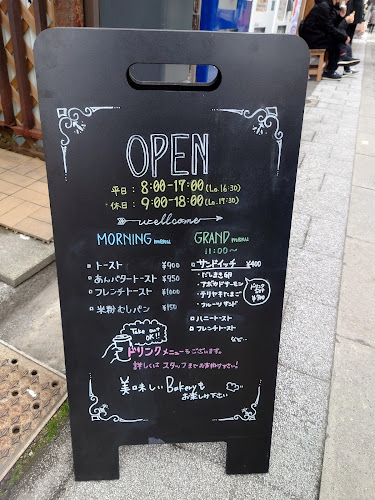 OPEN
平日：8:00-17:00(Lo.16:30)
休日：9:00-18:00(Lo.17:30)
wellcome
MORNING menu
GRAND menu
11:00〜
トースト ¥900
あんバタートースト ¥950
フレンチトースト ¥1000
米粉むしパン ¥150
サンドイッチ ¥900
・だしまき
・テリヤキたまご
・フルーツサンド
ドリンク
SET
ハニートースト
フレンチトースト
など…
Take out
OK!!
ドリンクメニューもございます。
詳しくはスタッフまでお声掛け下さい!
美味しいBakeryを
お楽しみ下さい